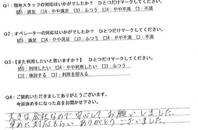 Q1:現地スタッフの対応はいかがでしたか? ひとつだけマークしてください。
満足 やや満足 ふつう やや不満 不満
Q2:オペレーターの対応はいかがでしたか? ひとつだけマークしてください。
満足 やや満足 ふつう やや不満 不満
Q3:【また利用したいと思いますか?】 ひとつだけマークしてください。
利用したい ふつう
検討する 利用を控える
Q4:ご契約いただきましてありがとうございます。
今回決め手になった点をお聞かせ下さい。
大きな会社なので安心してお願いしました。
早めに対応もらい、ありがとうございました。